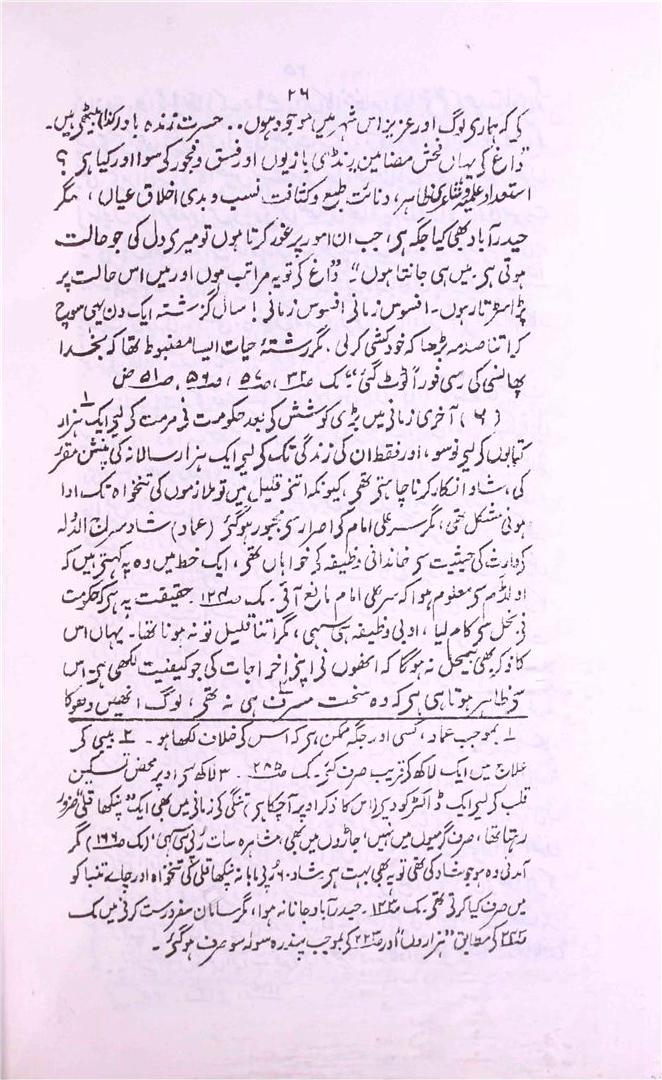 ۲۶
کی کہ ہماری لوگ اور عزیز اس شہر میں موجود ہوں.. حسرت زندہ باد رکنا بیٹھی ہیں۔
”داغ کی یہاں فحش مضامین رنڈی بازیوں اور فسق و فجور کی سوا اور کیا ہی ؟
استعداد علمیہ ظاہر، دنائت طبع و کثافت نسب و بدی اخلاق عیاں، مگر
حیدرآباد بھی کیا جگہ ہی، جب ان امور پر غور کرتا ہوں تو میری دل کی جو حالت
ہوتی ہی، میں ہی جانتا ہوں“۔ ”داغ کی تو یہ مراتب ہوں اور میں اس حالت پر
پڑا سڑتا رہوں۔ افسوس زمانی افسوس زمانی! سال گزشتہ ایک دن یہی سوچ
کر اتنا صدمہ بڑھا کہ خودکشی کر لی، مگر رشتۂ حیات ایسا مضبوط تھا کہ بخدا
پھانسی کی رسی فوراً ٹوٹ گئی“ مک ص۳۲، ص۵۷، ص۵۶، ص۵۱ ض
(۶) آخری زمانی میں بڑی کوشش کی بعد حکومت نی مرمت کی لیی ایک ہزار
کتابوں کی لیی نو سو، اور فقط ان کی زندگی تک کی لیی ایک ہزار سالانہ کی پنشن مقرر
کی، شاد انکار کرنا چاہتی تھی، کیونکہ اتنی قلیل میں تو ملازموں کی تنخواہ تک ادا
ہونی مشکل تھی، مگر سر علی امام کی اصرار سی مجبور ہو گئی (عماد) شاد سراج الدولہ
کی وارث کی حیثیت سی خاندانی وظیفہ کی خواہاں تھی، ایک خط میں وہ یہ کہتی ہیں کہ
سی معلوم ہوا کہ سر علی امام مانع آئی۔ مک ص۱۲۴ حقیقت یہ ہی کہ حکومت
نی بخل سی کام لیا، ادبی وظیفہ ہی سہی، مگر اتنا قلیل تو نہ ہونا تھا۔ یہاں اس
کا ذکر بھی بیمحل نہ ہوگا کہ انھوں نی اپنی اخراجات کی جو کیفیت لکھی ہی۔ اس
سی ظاہر ہوتا ہی کہ وہ سخت مسرف ہی نہ تھی، لوگ انھیں دھوکا
۱ بموجب عماد، کسی اور جگہ ممکن ہی کہ اس کی خلاف لکھا ہو۔ ۲ بیبی کی
علاج میں ایک لاکھ کی قریب صرف کیی۔ مک ص۲۸۵۔ ۳ لاکھ سی اوپر محض تسکین
قلب کی لیی ایک ڈاکٹر کو دیی (اس کا ذکر اوپر آ چکا ہی) تنگی کی زمانی میں بھی ایک ”پنکھا قلی“ ضرور
رہتا تھا، صرف گرمیوں میں نہیں، جاڑوں میں بھی، مشاہرہ سات رپی سہی، (مک ص۱۶۶) مگر
آمدنی وہ ہو جو شاد کی تھی تو یہ بھی بہت ہی شاد ۶۰ رپی ماہانہ پنکھا قلی کی تنخواہ اور چاے تنباکو
میں صرف کیا کرتی تھی، مک ص۱۳۲۔ حیدرآباد جانا نہ ہوا، مگر سامان سفر درست کرنی میں مک
کی مطابق ”ہزاروں“ اور ص۲۲۳ کی بموجب پندرہ سولہ سو صرف ہو گئی۔